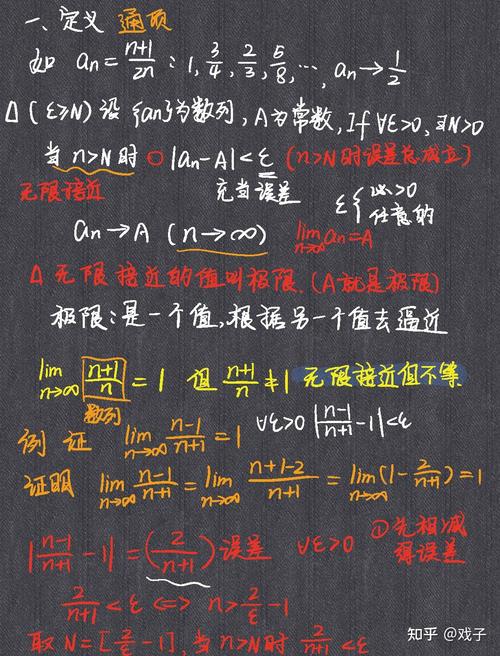 一、定义 通项
如 an = (n+1)/(2n) : 1, 3/4, 2/3, 5/8, ..., an→1/2
Δ (ε>N) 设{an}为数列, A为常数, If ∀ε>0, ∃N>0
当 n>N时 ○ |an-A|<ε (n>N时误差总成立)
无限接近 充当误差 ε{ >0
任意的
an→A (n→∞) lim n→∞ an=A
Δ 无限接近的值叫极限. (A就是极限)
极限: 是一个值, 根据另一个值去逼近
lim n→∞ (n+1)/n = 1 但 (n+1)/n ≠ 1 无限接近但不等
数列
例 证 lim n→∞ (n-1)/(n+1) = 1 ∀ε>0 |(n-1)/(n+1) - 1|<ε
证明 lim n→∞ (n-1)/(n+1) = lim n→∞ (n+1-2)/(n+1) = lim n→∞ (1- 2/(n+1)) = 1
|(n-1)/(n+1) - 1| = (2/(n+1)) 误差 ∀ε>0 ①先相减
得误差
2/(n+1) < ε <=> n > 2/ε - 1
取 N = [2/ε - 1], 当 n>N时 2/(n+1) < ε
知乎 @戏子